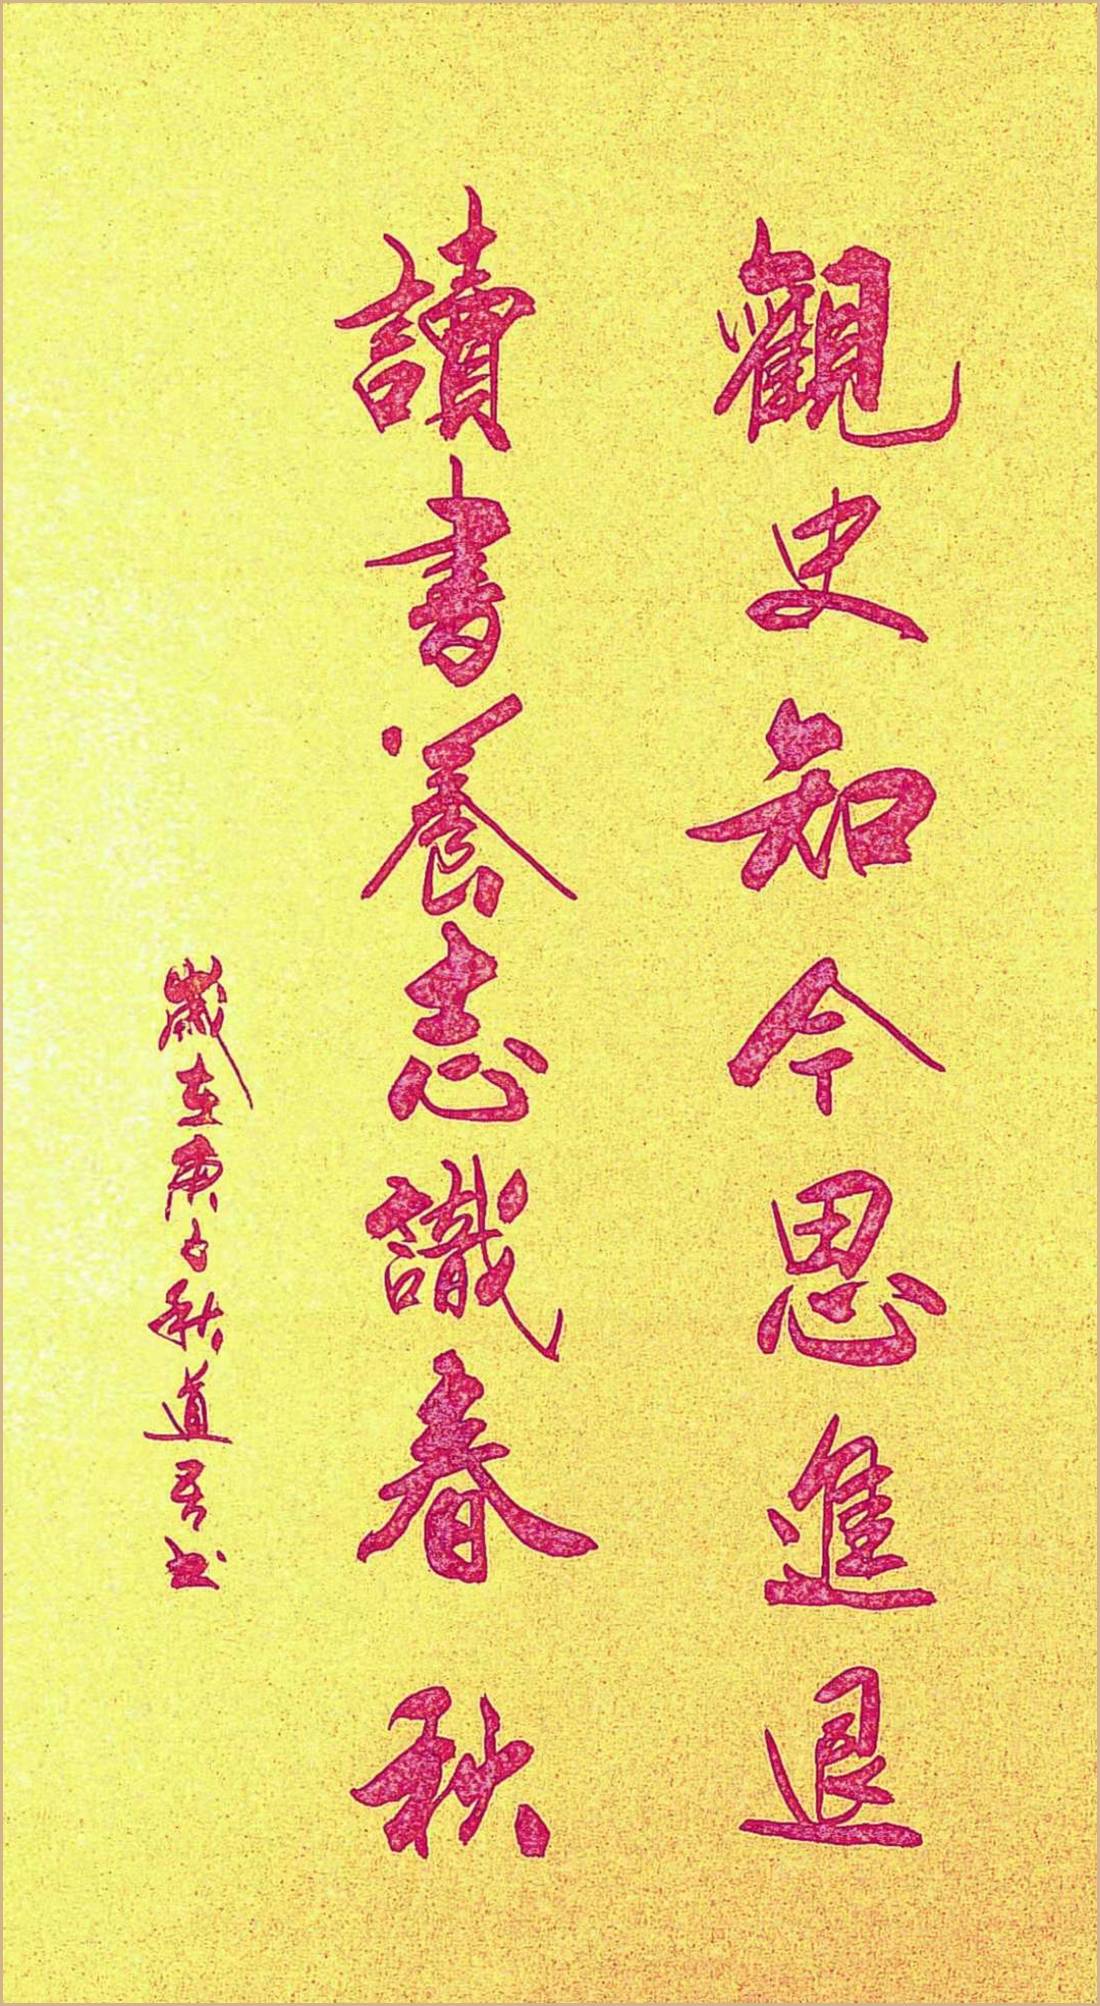 觀史知今思進退
讀書養志識春秋
歲在庚子秋道君书